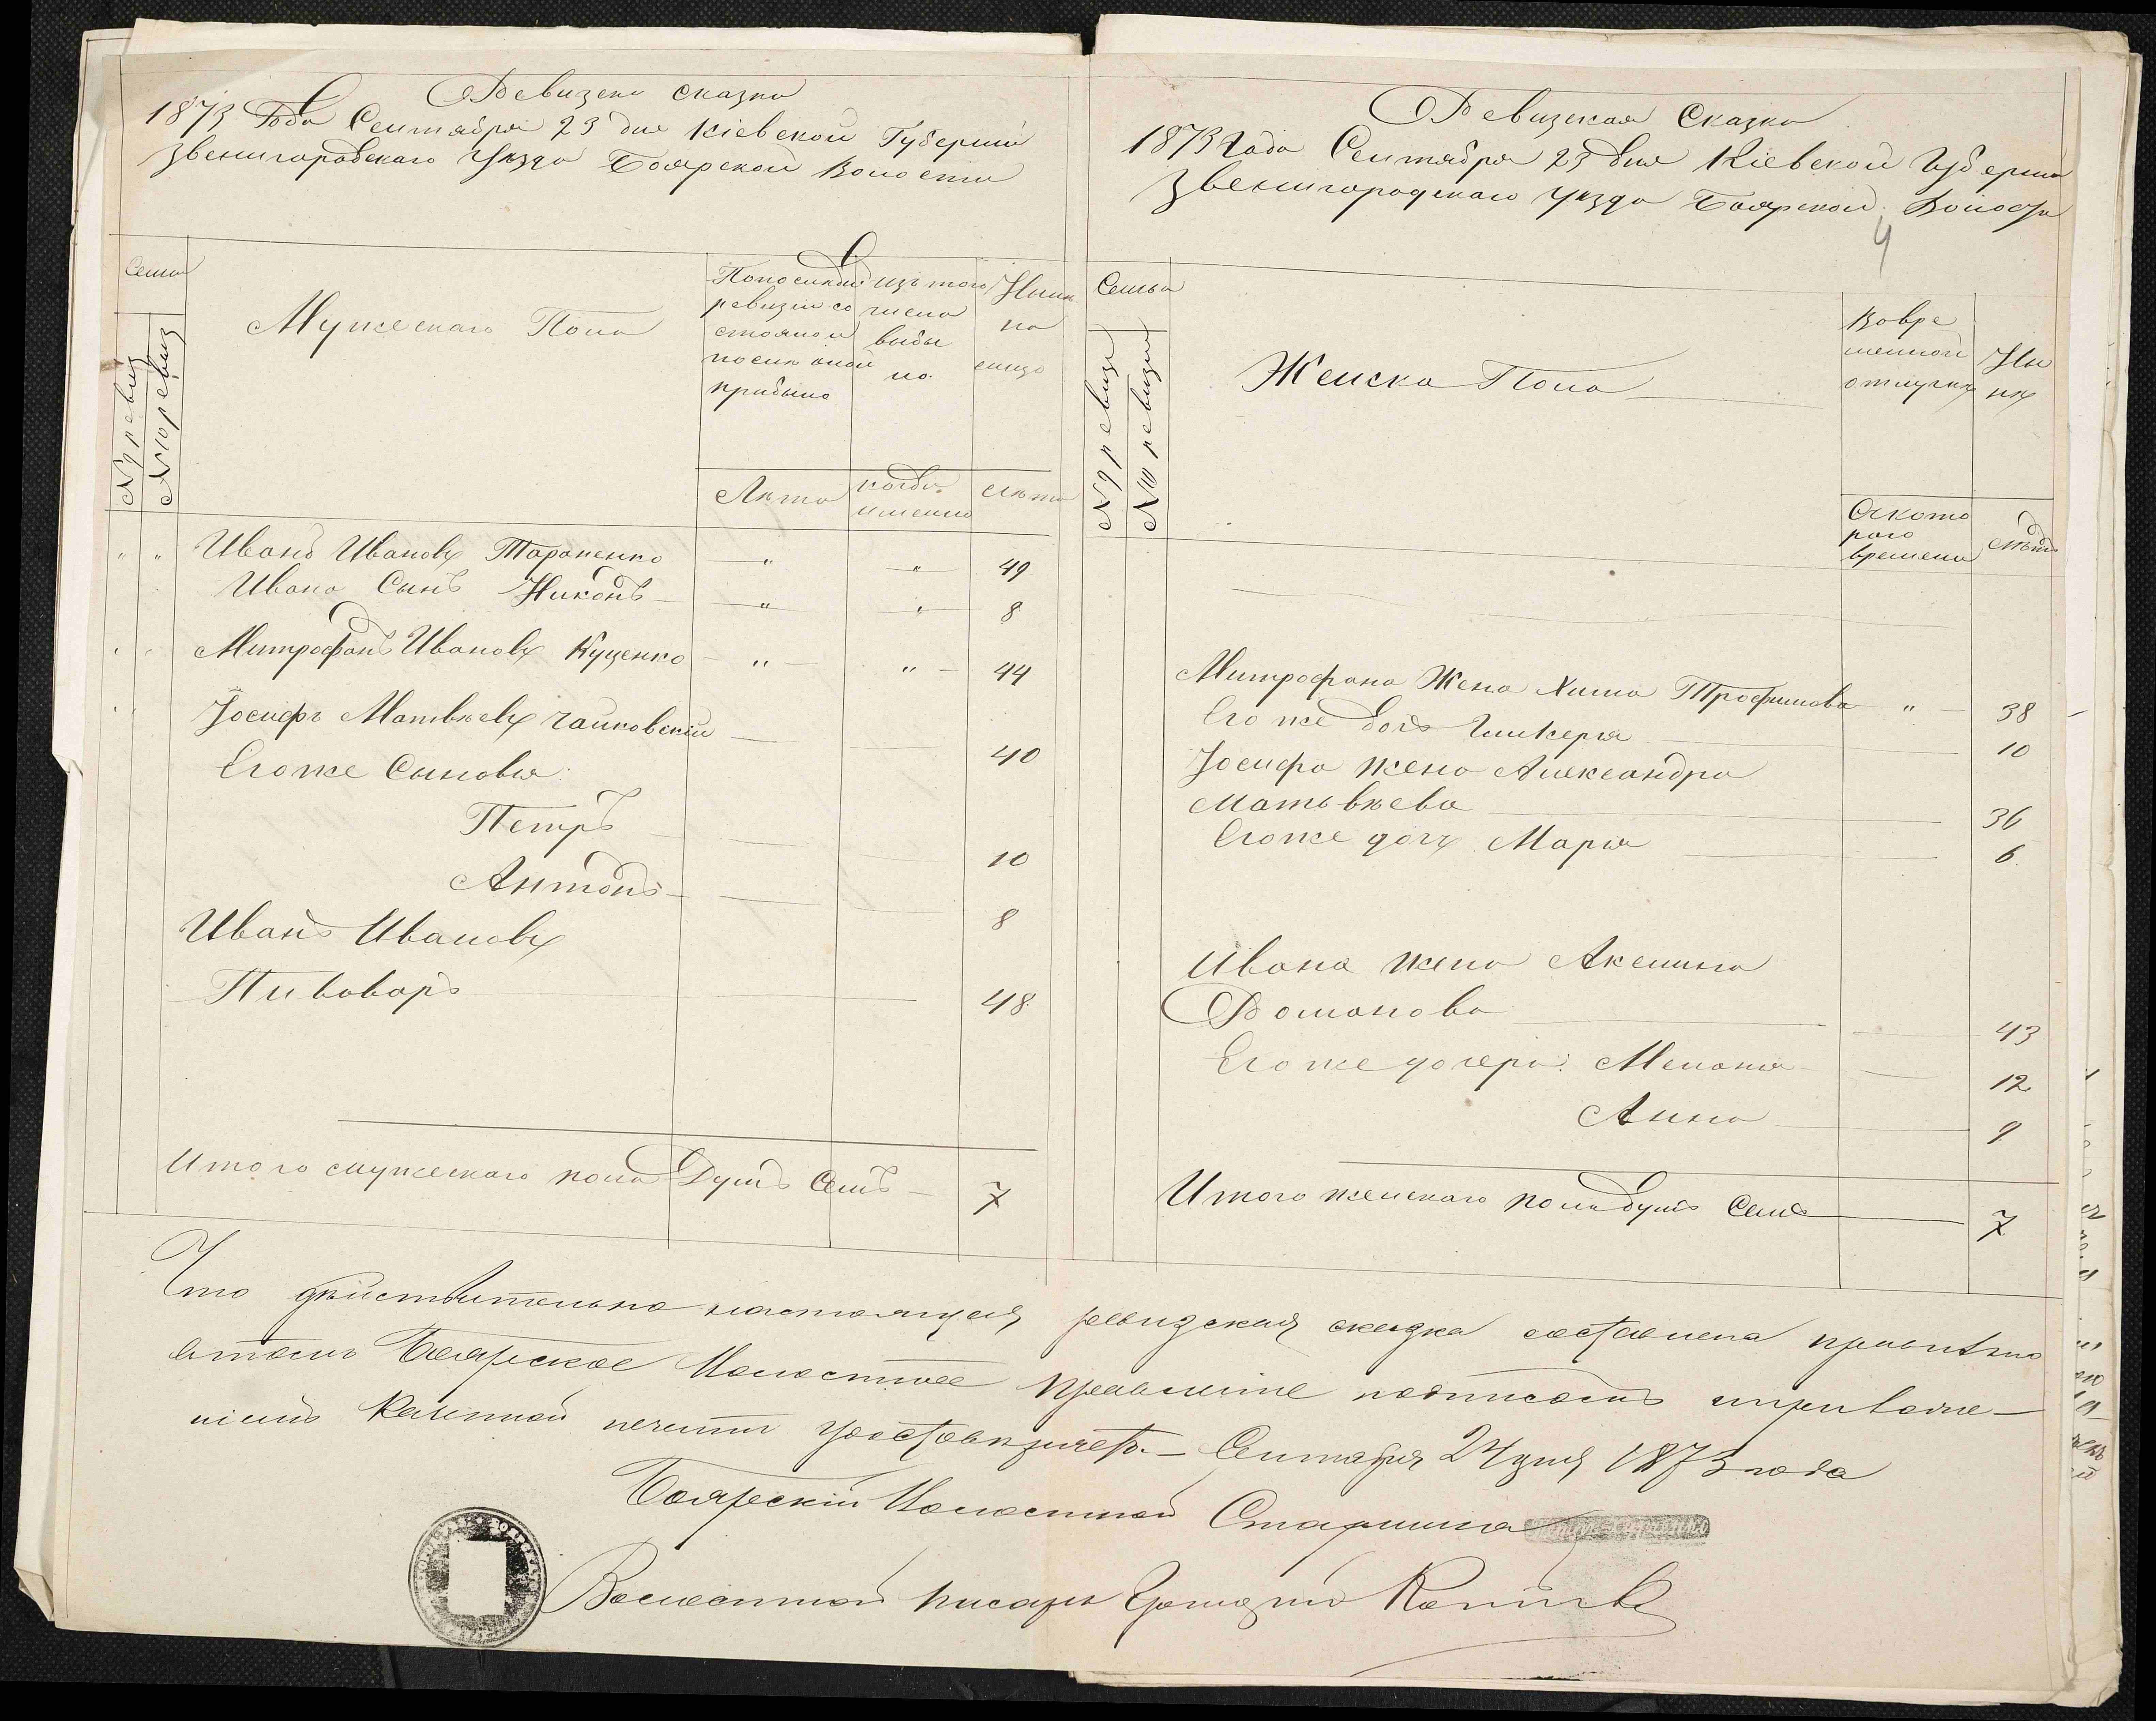 Ревизска сказка
1873 Года Сентября 23 дня Кіевской Губерніи
Звенигородскаго Уѣзда Боярской Волости
Семья
№ 9 ревиз
№ 10 ревиз
Мужескаго Пола
По последней
ревизіи со
стояло и
после оной
прибыло
Изъ того
числа
выбы
ло
Нынѣ
на
лицо
Лѣта
когда
именно
Лѣта
" " Иванъ Ивановъ Тараненко " " 49
Ивана Сынъ Никонъ " " 8
Митрофанъ Ивановъ Куценко " " 44
Іосифъ Матвѣевъ Чайковскій 40
Его же Сыновья
Петръ 10
Антонъ 8
Иванъ Ивановъ
Пивоваръ 48
Итого мужескаго пола Душъ Семъ 7
Ревизская Сказка
1873 Года Сентября 23 дня Кіевской Губерніи
Звенигородскаго Уѣзда Боярской Волости
4
Семья
№ 9 ревизіи
№ 10 ревизіи
Женска Пола
Во вре
менной
отлучкѣ
Ны
нѣ
Съ кото
раго
времени
лѣта
Митрофана Жена Хима Трофимова " 38
Его же дочь Гликерія 10
Іосифа жена Александра
Матьвѣева 36
Его же дочь Марія 6
Ивана жена Аксинья
Романова 43
Его же дочери: Меланья 12
Анна 9
Итого женскаго пола душъ Семъ 7
Что дѣйствительно настоящая ревизская сказка составлена правильно
втомъ Боярское Волостное Правленіе подписомъ и приложе-
ніемъ Казенной печати удостовѣряетъ. Сентября 24 дня 1873 года
Боярскій Волостной Старшина
Волостной писарь